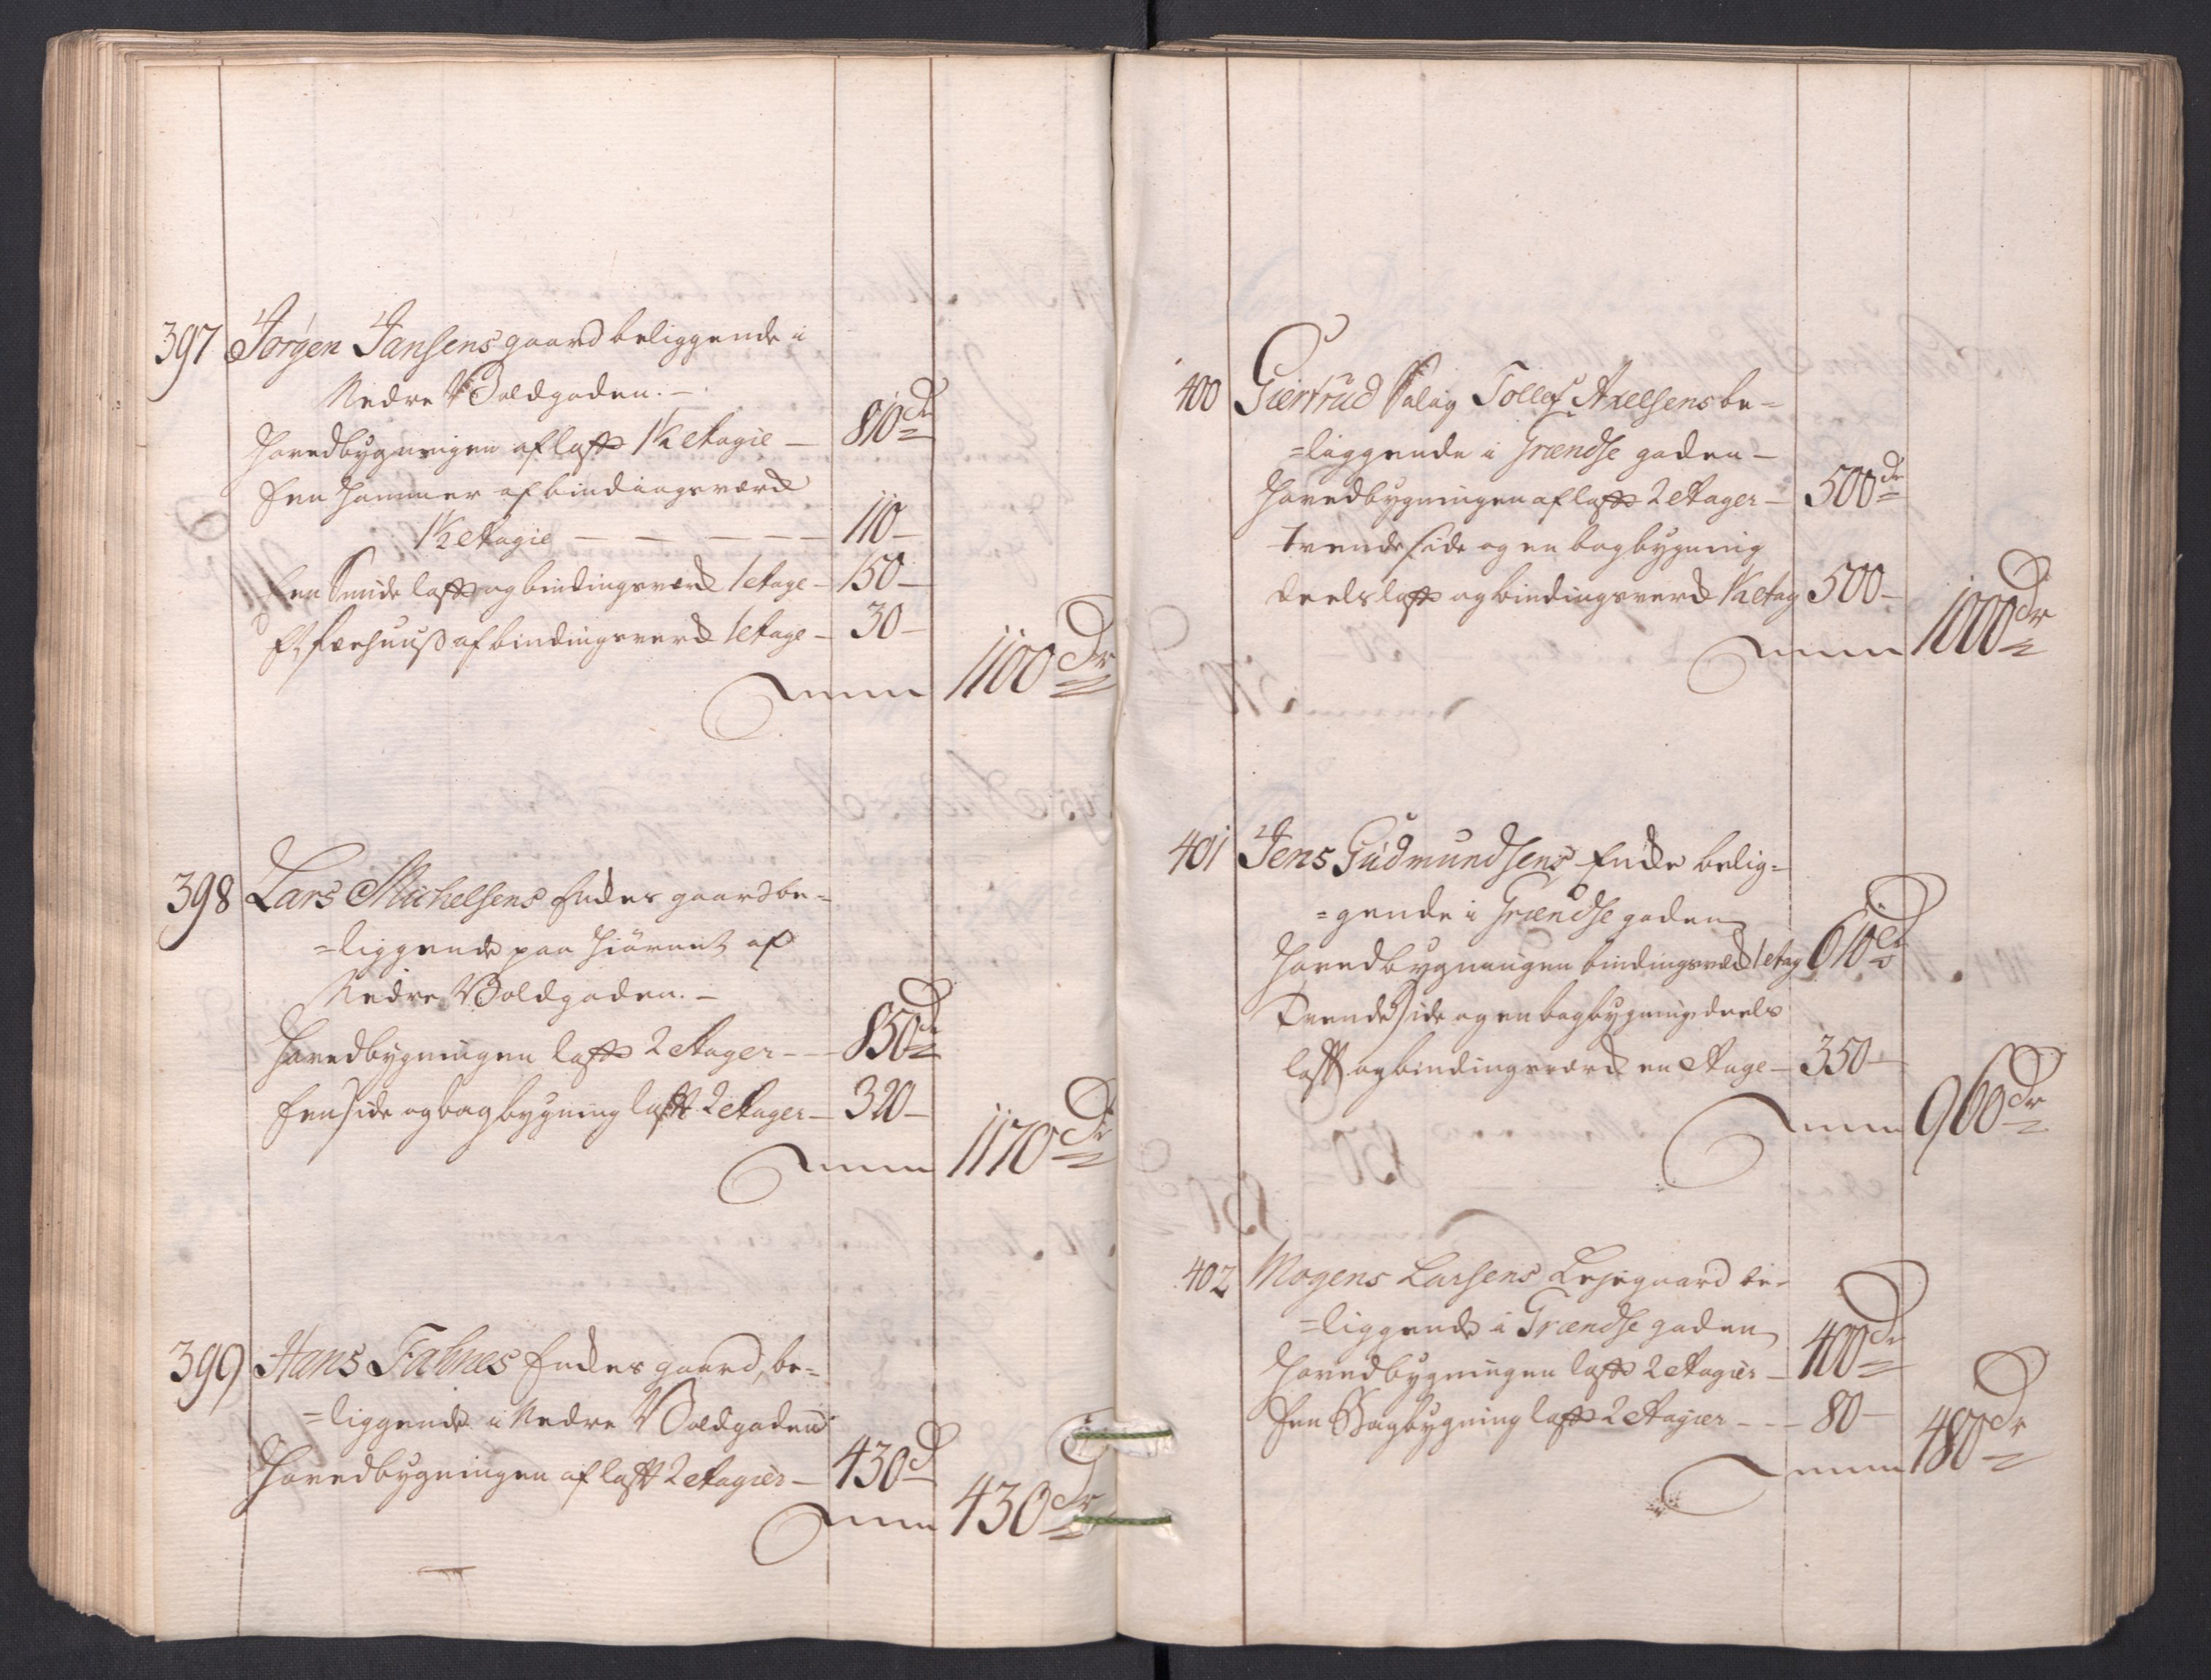 397 Jørgen Jansens gaard beliggende i
Nedre Voldgaden. –
Hovedbygningen af laft 1½ Etagie – 810 dr
Een Hammer af bindingsværk
1½ Etagie – – – – – 110 –
Een Smide laft og bindingsværk 1 Etage – 150 –
Et fæehuus af bindingsverk 1 Etage – 30 –
Summa 1100 Dr
398 Lars Michelsens Enkes gaard be=
=liggende paa Hiørnet af
Nedre Voldgaden. –
Hovedbygningen laft 2 Etager – – 850 dr
Een side og bagbygning laft 2 Etager – 320 –
Summa 1170 Dr
399 Hans Fabnes Enkes gaard, be=
=liggende i Nedre Voldgaden
Hovedbygningen af laft 2 Etagies – 430 d
Summa 430 Dr
400 Giertrud Salig Tollef Axelsens be=
=liggende i Grændse gaden –
Hovedbygningen af laft 2 Etager – 500 dr
Trende side og en bagbygning
deels laft og bindingsverk 1½ Etag 500 –
Summa 1000 Dr
401 Jens Gudmundsens Enke belig=
=gende i Grændse gaden
Hovedbygningen bindingsværk 1 Etag 610 dr
Tvende side og en bagbygning, deels
laft og bindingsværk en Etage – 350 –
Summa 960 Dr
402 Mogens Larsens Lejegaard be=
=liggende i Grændse gaden
Hovedbygningen laft 2 Etagies – 400 Dr
Een Bagbygning laft 2 Etagier – – 80 –
Summa 480 Dr